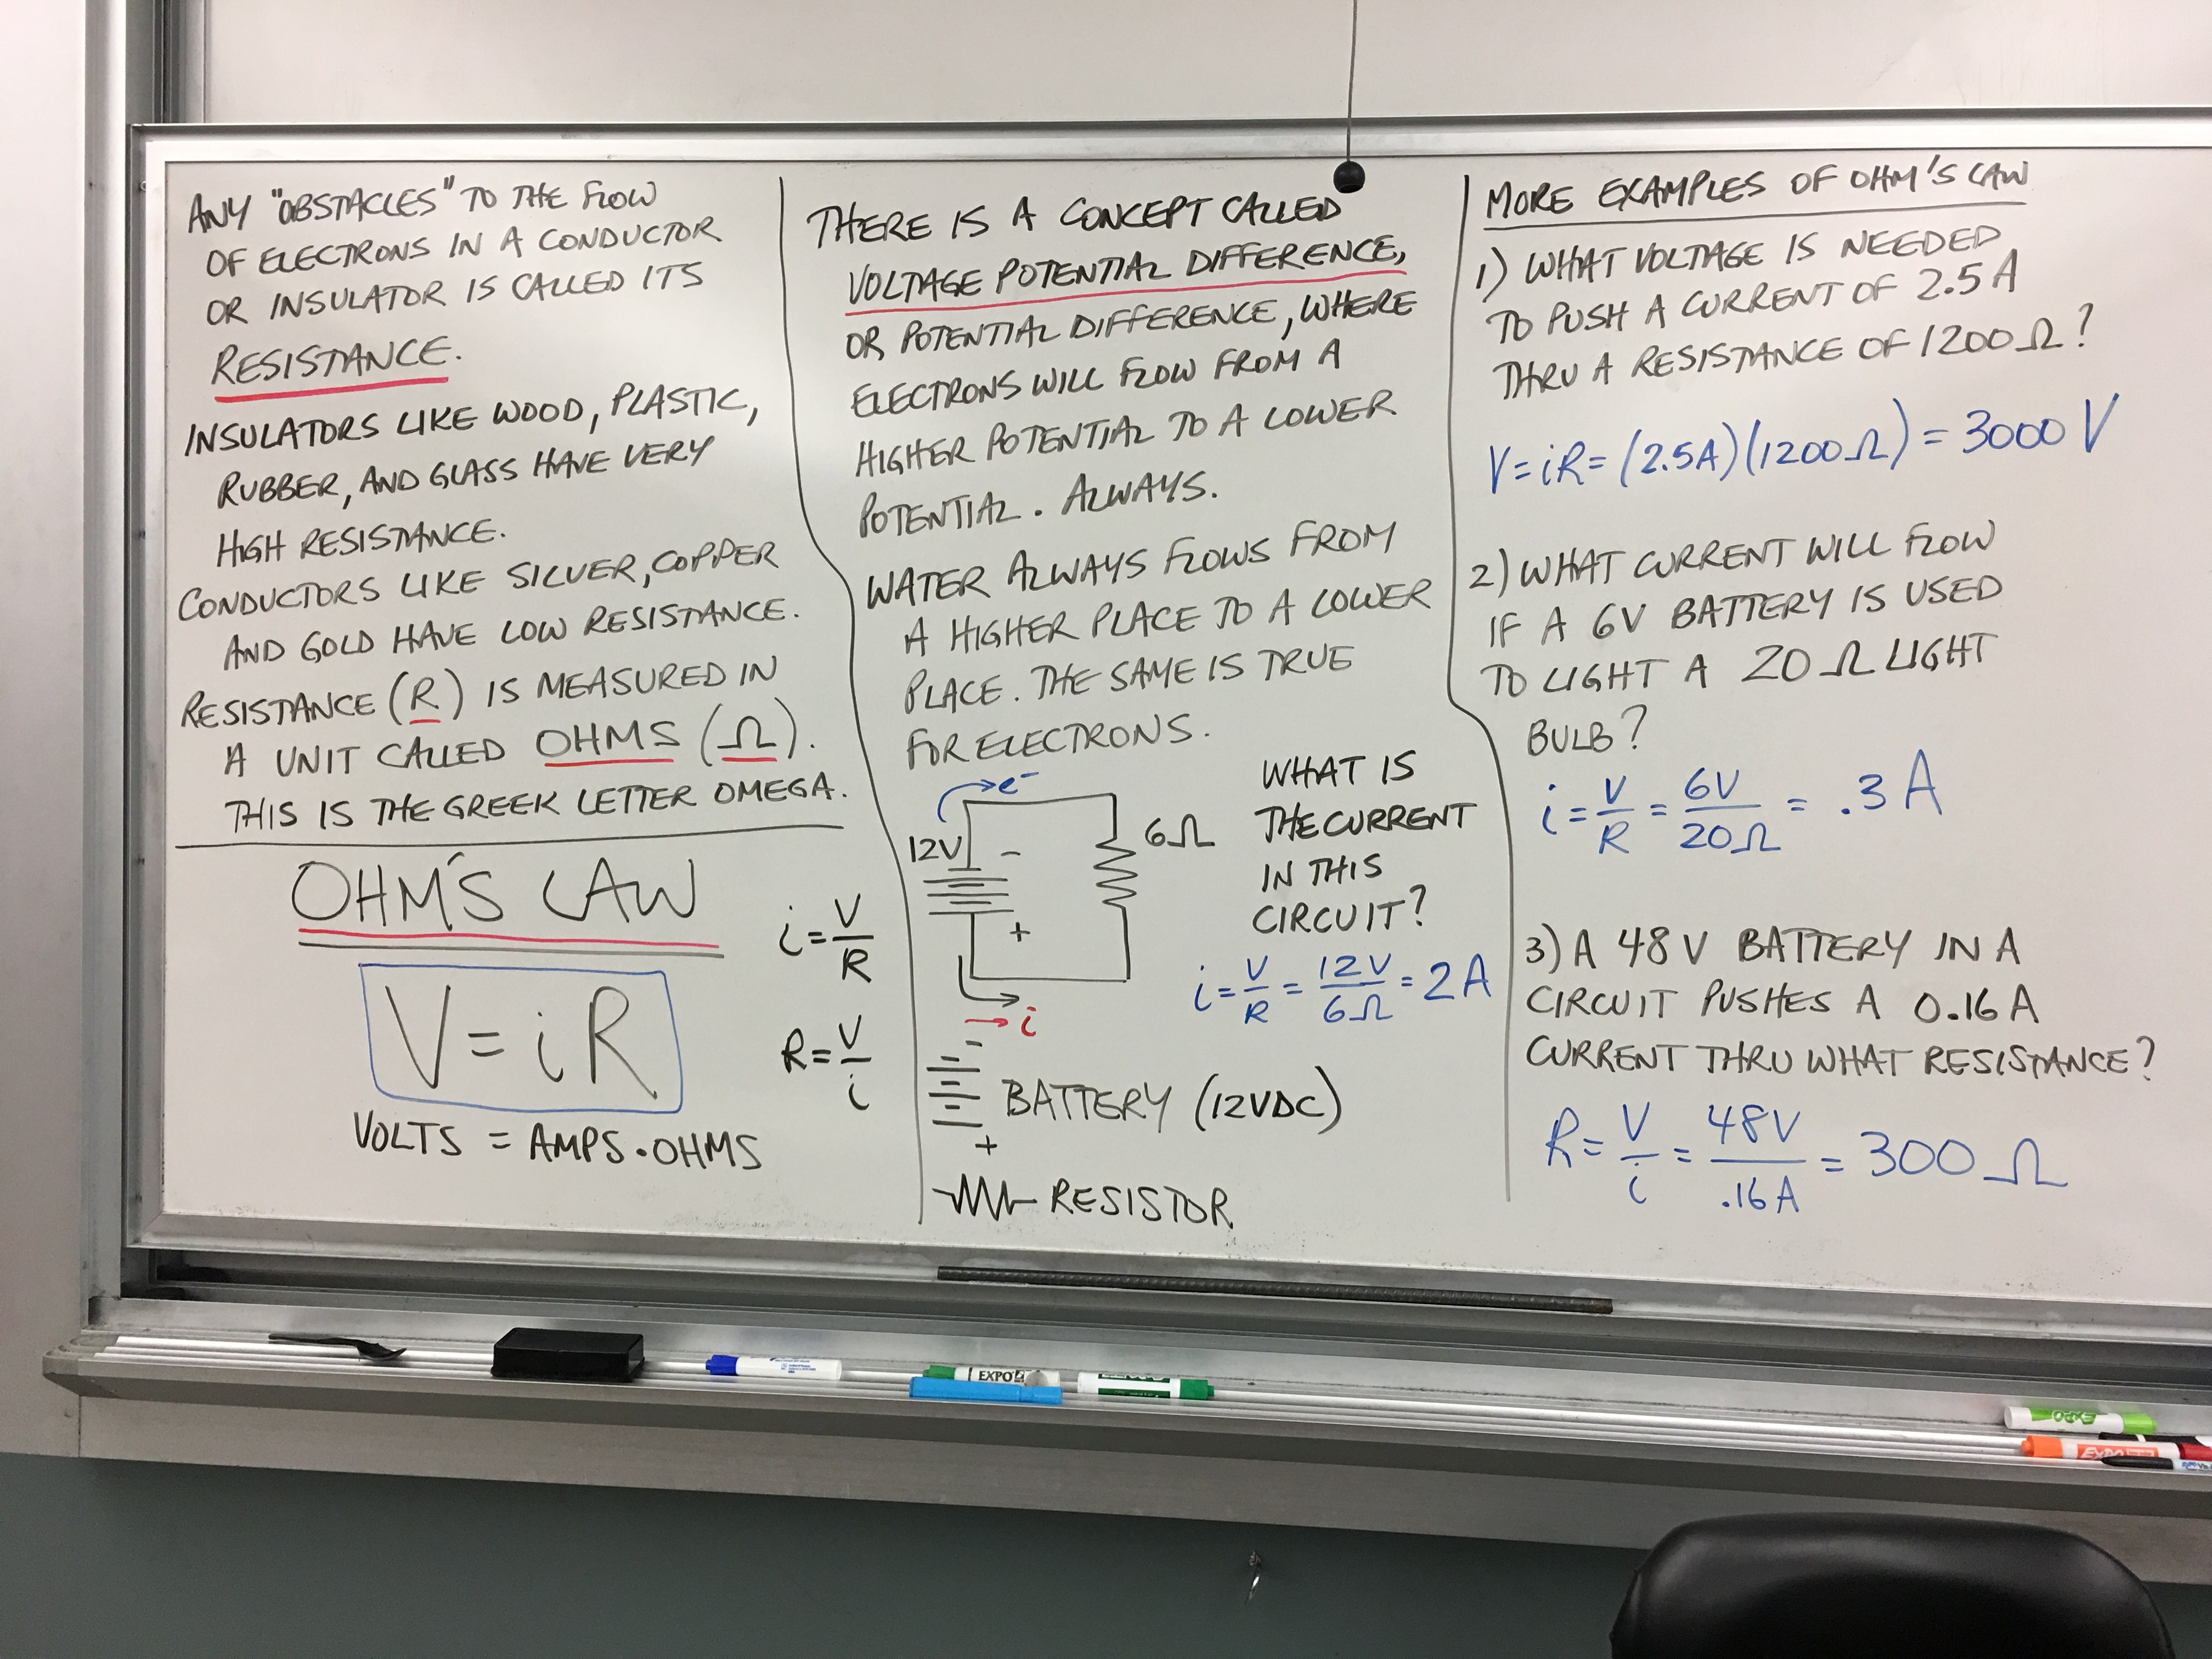 ANY "OBSTACLES" TO THE FLOW
OF ELECTRONS IN A CONDUCTOR
OR INSULATOR IS CALLED ITS
RESISTANCE.
INSULATORS LIKE WOOD, PLASTIC,
RUBBER, AND GLASS HAVE VERY
HIGH RESISTANCE.
CONDUCTORS LIKE SILVER, COPPER
AND GOLD HAVE LOW RESISTANCE.
RESISTANCE (R) IS MEASURED IN
A UNIT CALLED OHMS (Ω).
THIS IS THE GREEK LETTER OMEGA.
OHM'S LAW
V = iR
VOLTS = AMPS·OHMS
i = V/R
R = V/i
THERE IS A CONCEPT CALLED
VOLTAGE POTENTIAL DIFFERENCE,
OR POTENTIAL DIFFERENCE, WHERE
ELECTRONS WILL FLOW FROM A
HIGHER POTENTIAL TO A LOWER
POTENTIAL. ALWAYS.
WATER ALWAYS FLOWS FROM
A HIGHER PLACE TO A LOWER
PLACE. THE SAME IS TRUE
FOR ELECTRONS.
e⁻
12V
-
+
6Ω
i
WHAT IS
THE CURRENT
IN THIS
CIRCUIT?
i = V/R = 12V/6Ω = 2A
-
BATTERY (12VDC)
+
RESISTOR
MORE EXAMPLES OF OHM'S LAW
1) WHAT VOLTAGE IS NEEDED
TO PUSH A CURRENT OF 2.5 A
THRU A RESISTANCE OF 1200Ω?
V = iR = (2.5A)(1200Ω) = 3000 V
2) WHAT CURRENT WILL FLOW
IF A 6V BATTERY IS USED
TO LIGHT A 20Ω LIGHT
BULB?
i = V/R = 6V/20Ω = .3 A
3) A 48V BATTERY IN A
CIRCUIT PUSHES A 0.16A
CURRENT THRU WHAT RESISTANCE?
R = V/i = 48V/.16A = 300 Ω
EXPO
EXPO
EXPO